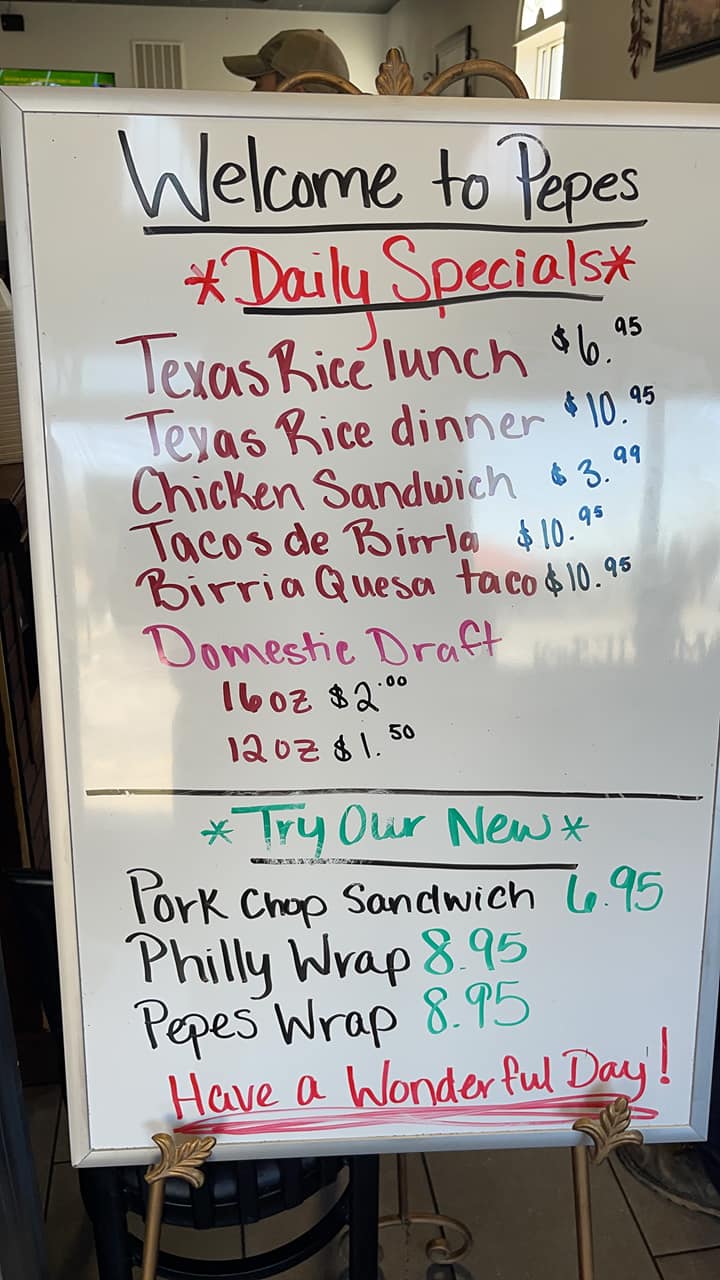 Welcome to Pepes
*Daily Specials*
Texas Rice lunch $6.95
Texas Rice dinner $10.95
Chicken Sandwich $3.99
Tacos de Birria $10.95
Birria Quesa taco $10.95
Domestic Draft
16oz $2.00
12oz $1.50
*Try Our New*
Pork Chop Sandwich 6.95
Philly Wrap 8.95
Pepes Wrap 8.95
Have a Wonderful Day!